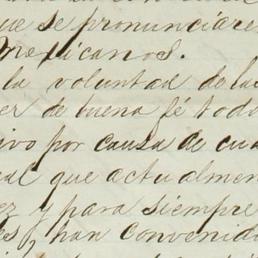 que se pronunciare
Mexicanos.
la voluntad de la
er de buena fé todo
ivo por causa de cua
al que actualmen
ez y para siempre
es, han convenid